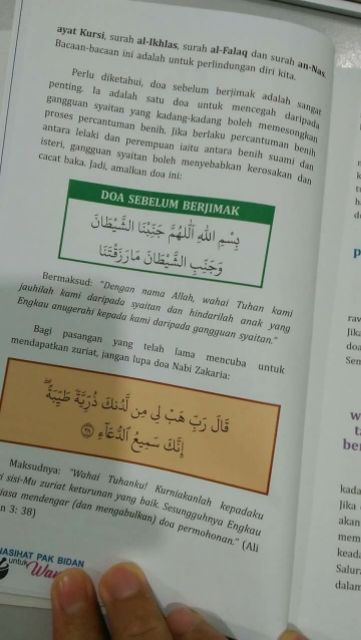 ayat Kursi, surah al-Ikhlas, surah al-Falaq dan surah an-Nas.
Bacaan-bacaan ini adalah untuk perlindungan diri kita.
Perlu diketahui, doa sebelum berjimak adalah sangat
penting. Ia adalah satu doa untuk mencegah daripada
gangguan syaitan yang kadang-kadang boleh memesongkan
proses percantuman benih. Jika berlaku percantuman benih
antara lelaki dan perempuan iaitu antara benih suami dan
isteri, gangguan syaitan boleh menyebabkan kerosakan dan
cacat baka. Jadi, amalkan doa ini:
DOA SEBELUM BERJIMAK
بِسْمِ اللهِ اَللّٰهُمَّ جَنِّبْنَا الشَّيْطَانَ
وَجَنِّبِ الشَّيْطَانَ مَا رَزَقْتَنَا
Bermaksud: "Dengan nama Allah, wahai Tuhan kami
jauhilah kami daripada syaitan dan hindarilah anak yang
Engkau anugerahi kepada kami daripada gangguan syaitan."
Bagi pasangan yang telah lama mencuba untuk
mendapatkan zuriat, jangan lupa doa Nabi Zakaria:
قَالَ رَبِّ هَبْ لِي مِن لَّدُنكَ ذُرِّيَّةً طَيِّبَةً ۖ
إِنَّكَ سَمِيعُ الدُّعَآءِ ٣٨
Maksudnya: "Wahai Tuhanku! Kurniakanlah kepadaku
i sisi-Mu zuriat keturunan yang baik. Sesungguhnya Engkau
iasa mendengar (dan mengabulkan) doa permohonan." (Ali
n 3: 38)
NASIHAT PAK BIDAN
untuk Wan
p
rav
Jika
doa
Sem
w
ta
b
kada
Jika
akan
mem
kead
Salur
dalam